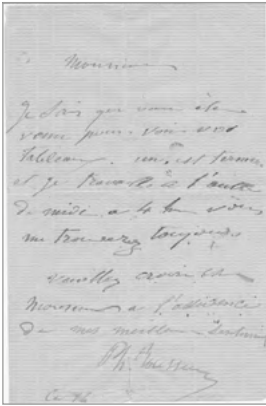 Monsieur
Je sais que vous êtes
venu pour voir vos
tableaux. un est terminé
et je travaille à l'autre
de midi a 4 h vous
me trouverez toujours
veuillez croire
Monsieur a l'assurance
de mes meilleurs sentiments
Ph. Rousseau
Ce 16